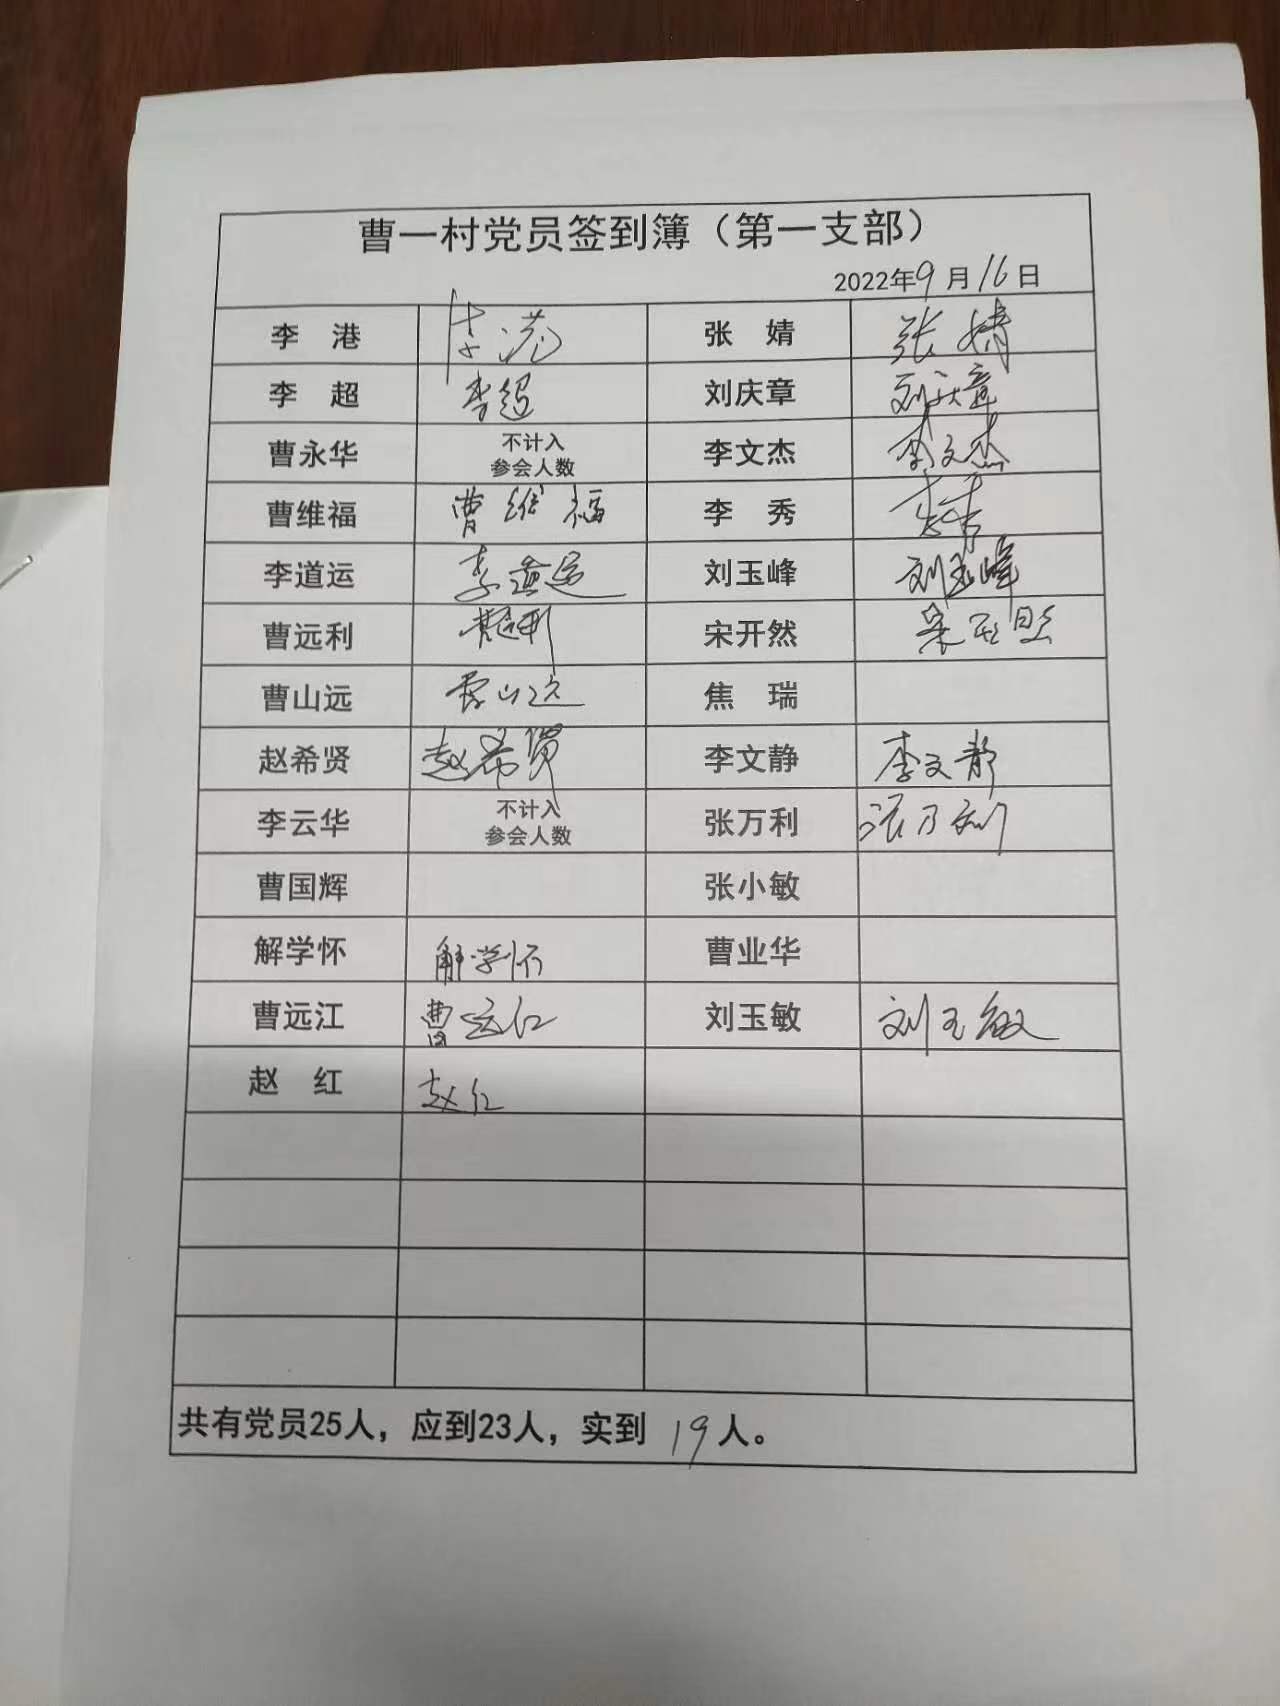 曹一村党员签到簿（第一支部）
2022年9月16日
李 港 李港 张 婧 张婧
李 超 李超 刘庆章 刘庆章
曹永华 不计入 李文杰 李文杰
参会人数
曹维福 曹维福 李 秀 李秀
李道运 李道运 刘玉峰 刘玉峰
曹远利 曹远利 宋开然 宋开然
曹山远 曹山远 焦 瑞
赵希贤 赵希贤 李文静 李文静
李云华 不计入 张万利 张万利
参会人数
曹国辉 张小敏
解学怀 解学怀 曹业华
曹远江 曹远江 刘玉敏 刘玉敏
赵 红 赵红
共有党员25人，应到23人，实到 19人。